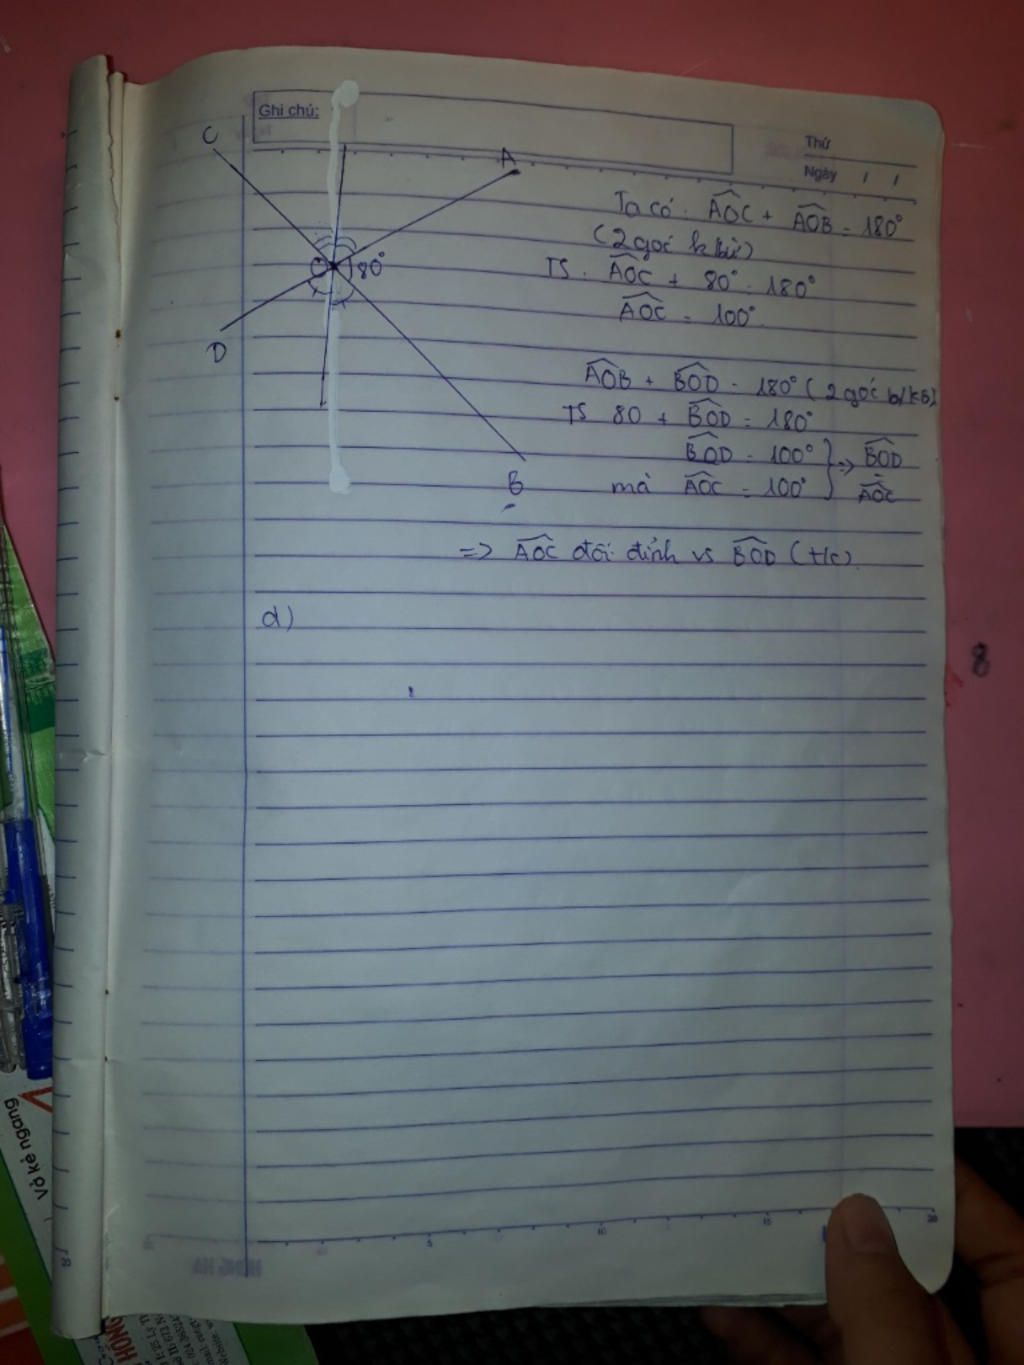 Ghi chú:
Thứ
Ngày / /
C
A
O
80°
D
B
Ta có: AOC + AOB = 180°
(2 góc k bù)
TS: AOC + 80° = 180°
AOC = 100°
AOB + BOD = 180° (2 góc
TS 80 + BOD = 180°
BOD = 100° } => BOD
mà AOC = 100° } = AOC
=> AOC đối đỉnh vs BOD (t/c).
d)
8
Vở kẻ ngang
HONG HA
5
10
15
HỒNG